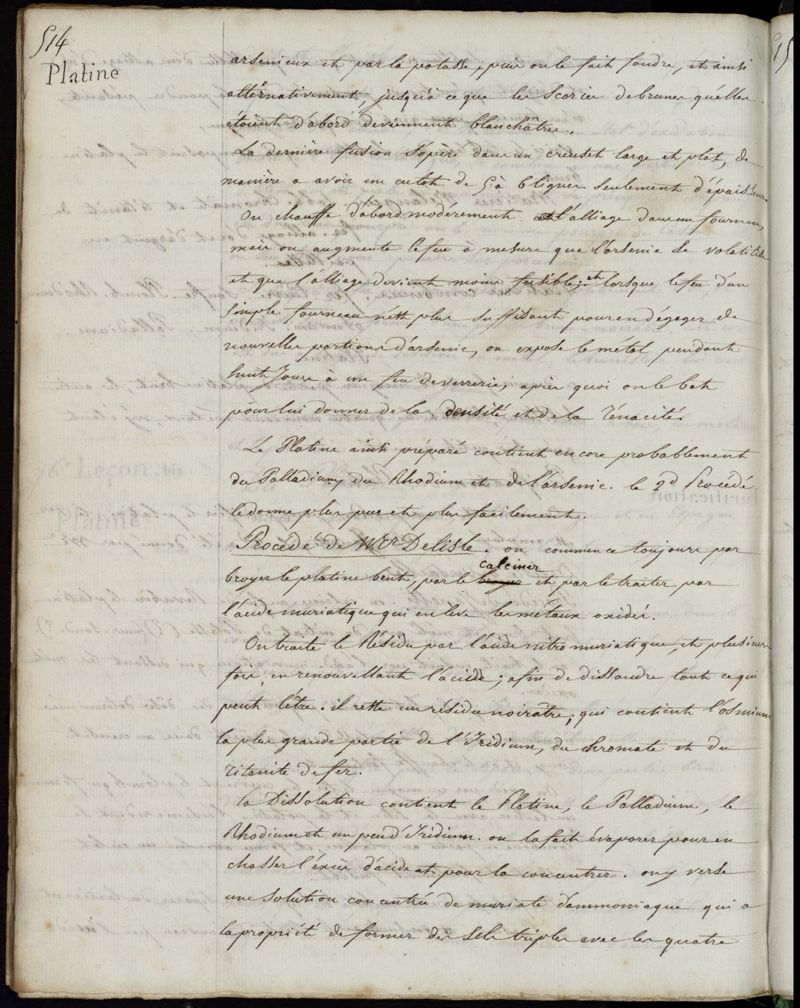 514
Platine
arsenieux et par la potasse, puis on le fait fondre, et ainsi
alternativement, jusqu'à ce que les Scories de brunes qu'elles
étoient d'abord deviennent blanchâtres.
La dernière fusion s'opère dans un creuset large et plat, de
manière a avoir un culot de 5 à 6 lignes seulement d'épaisseur.
On chauffe d'abord modérement l'alliage dans un fourneau,
mais on augmente le feu à mesure que l'arsenic se volatilise
et que l'alliage devient moins fusible; et lorsque le feu d'un
simple fourneau n'est plus suffisant pour en dégager de
nouvelles portions d'arsenic, on expose le métal pendant
huit Jours à un feu de verrerie, après quoi on le bat
pour lui donner de la densité et de la ténacité.
Le Platine ainsi préparé contient encore probablement
du Palladium, du Rhodium et de l'arsenic. le 2d Procédé
le donne plus pur et plus facilement.
Procédé de Mr Delisle. on commence toujours par
broyer le platine brut, par le calciner et par le traiter par
l'acide muriatique qui enlève les métaux oxidés.
On traite le Résidu par l'acide nitro muriatique, et plusieurs
fois, en renouvellant l'acide; afin de dissoudre tout ce qui
peut l'être: il reste un résidu noirâtre, qui contient l'osmium
la plus grande partie de l'Iridium, du chromate et du
titanite de fer.
la Dissolution contient le Platine, le Palladium, le
Rhodium et un peu d'Iridium. on la fait évaporer pour en
chasser l'excès d'acide et pour la concentrer. on y verse
une solution concentrée de muriate d'ammoniaque qui a
la propriété de former des sels triples avec les quatre